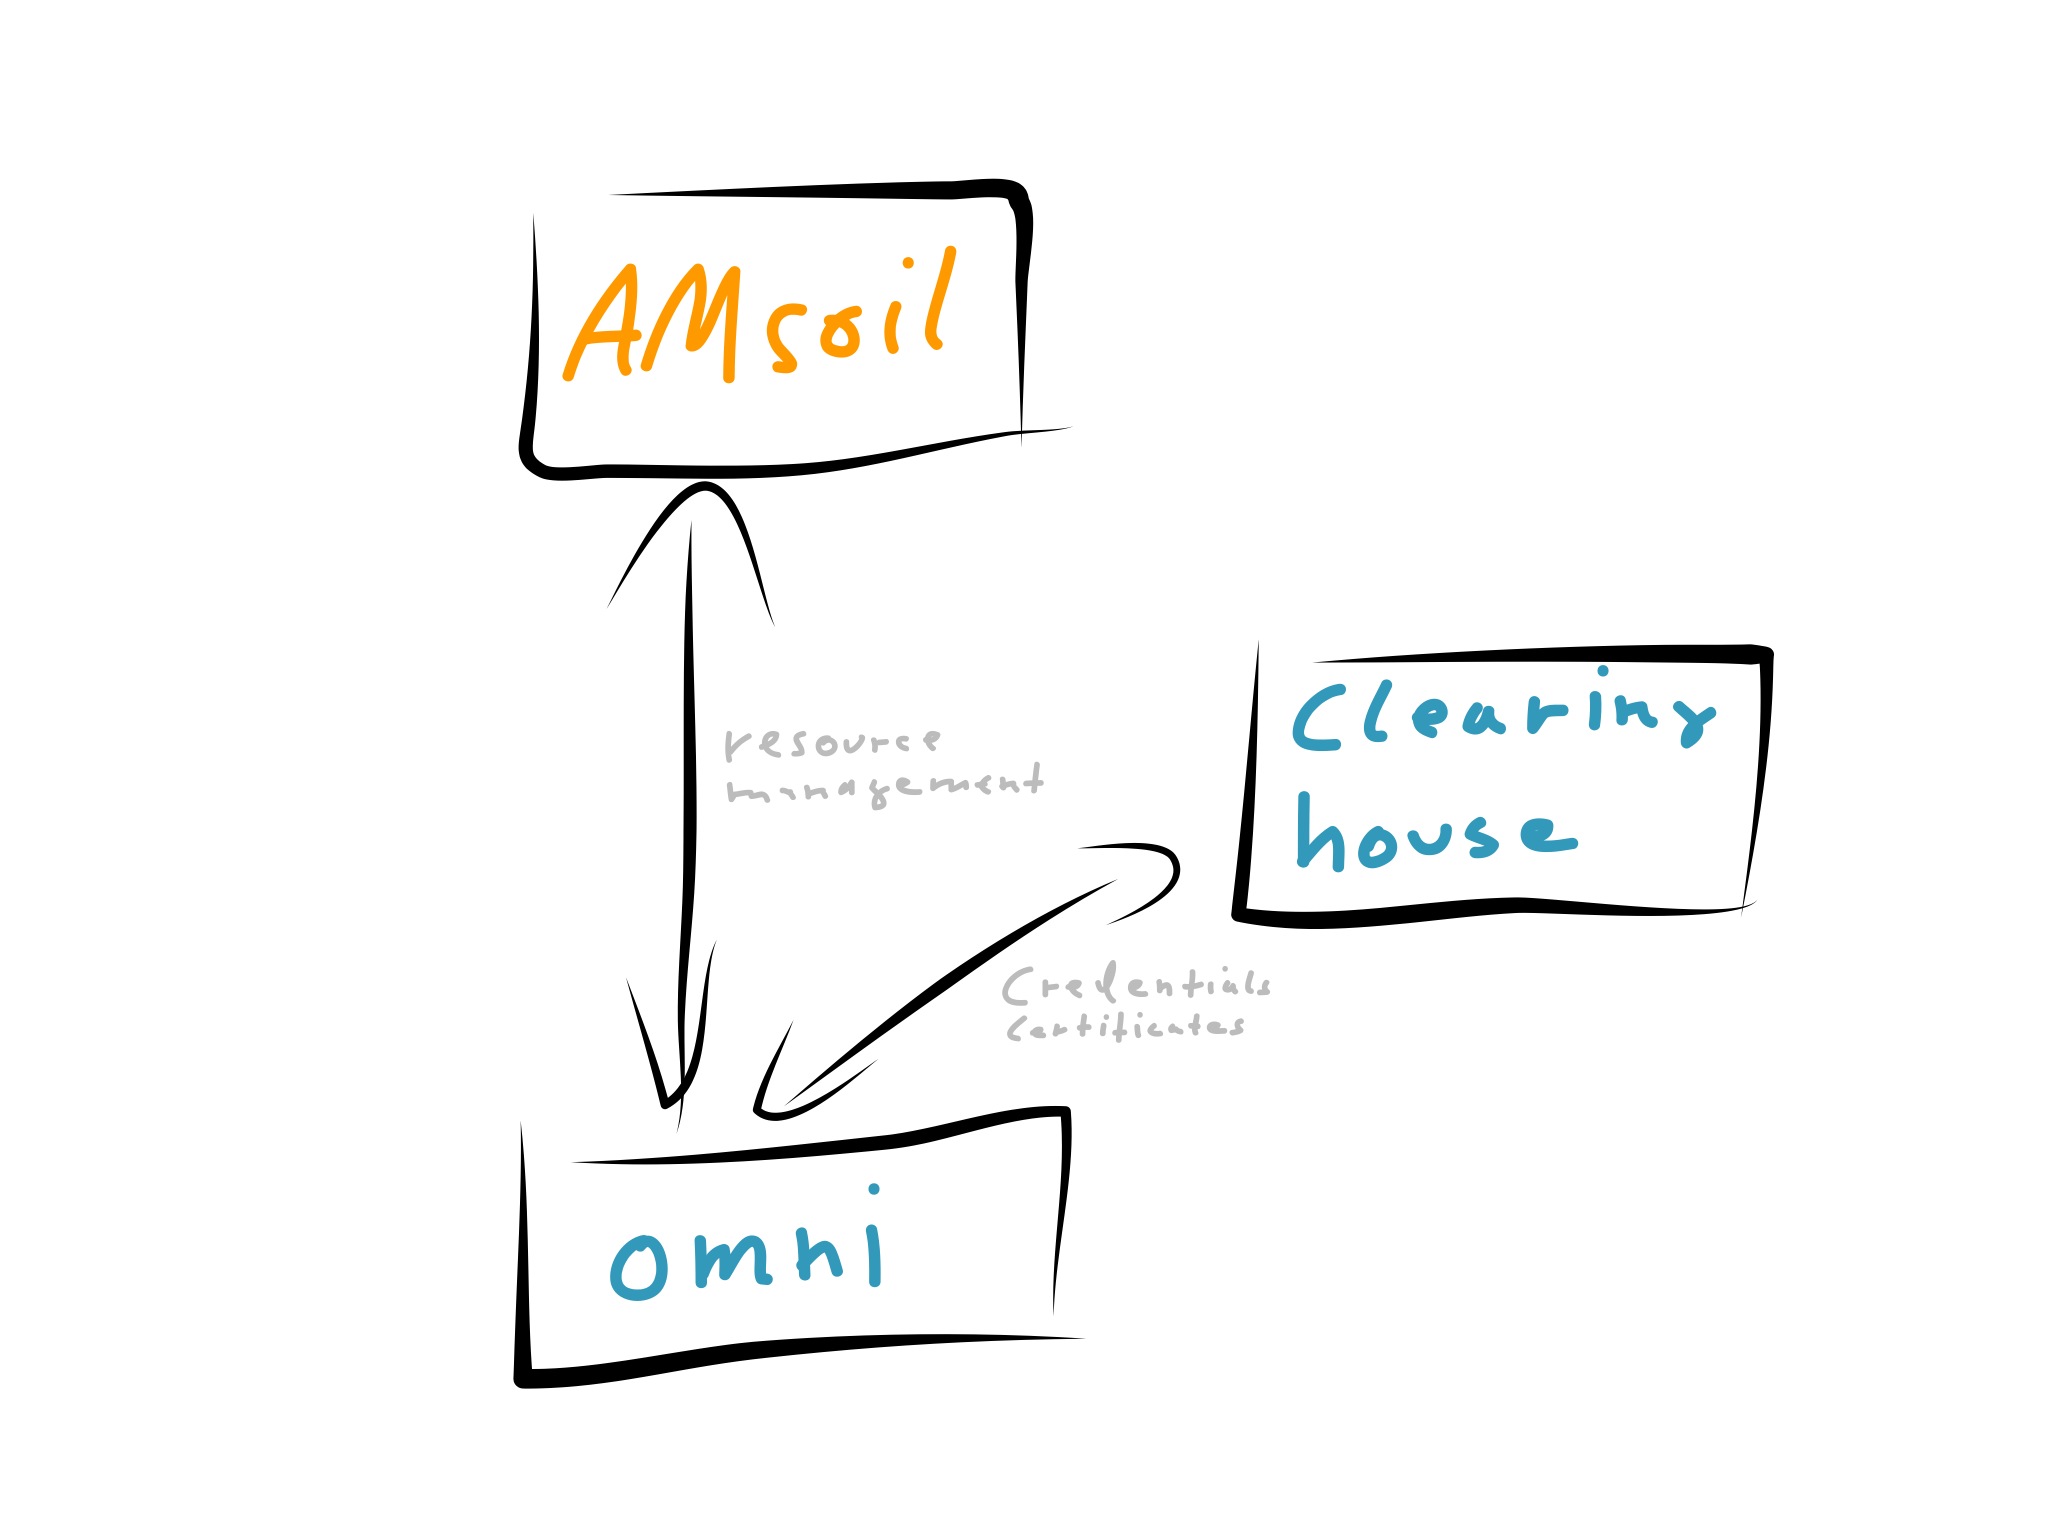 AMsoil
resource
management
Clearing
house
Credentials
Certificates
omni